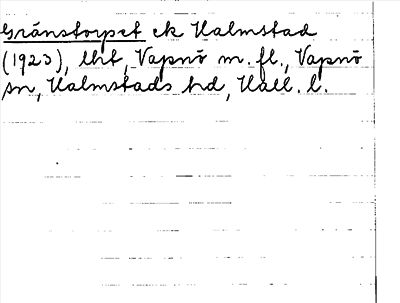 Gränstorpet ek Halmstad
(1923), lht, Vapnö m. fl., Vapnö
sn, Halmstads hd, Hall. l.